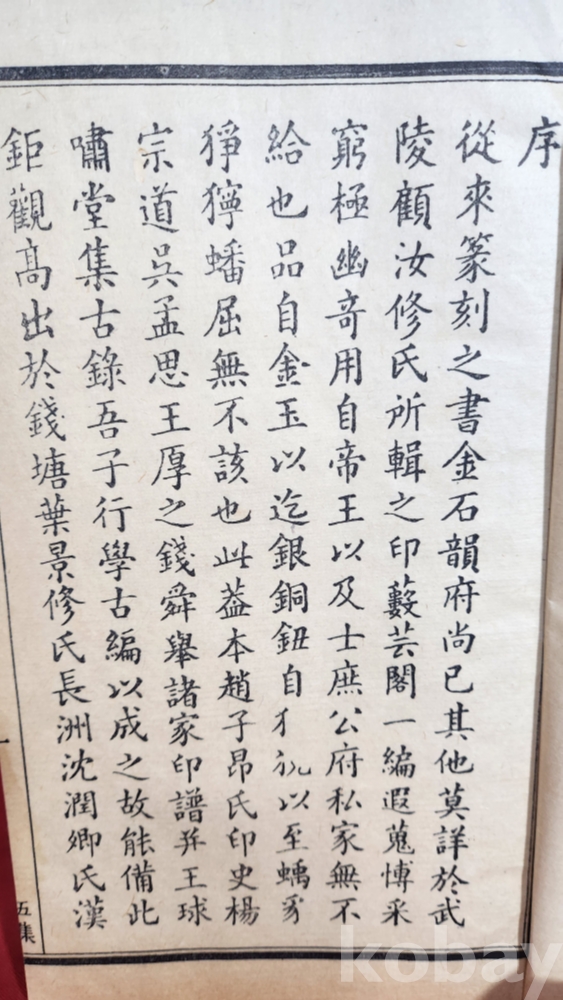 序
從來篆刻之書金石韻府尚已其他莫詳於武
陵顧汝修氏所輯之印藪芸閣一編遐蒐博采
窮極幽奇用自帝王以及士庶公府私家無不
給也品自金玉以迄銀銅鈕自犭以至螭
猙獰蟠屈無不該也此葢本趙子昂氏印史楊
宗道吳孟思王厚之錢舜舉諸家印譜并王球
嘯堂集古錄吾子行學古編以成之故能備此
鉅觀高出於錢塘葉景修氏長洲沈潤卿氏漢
五集
kobay